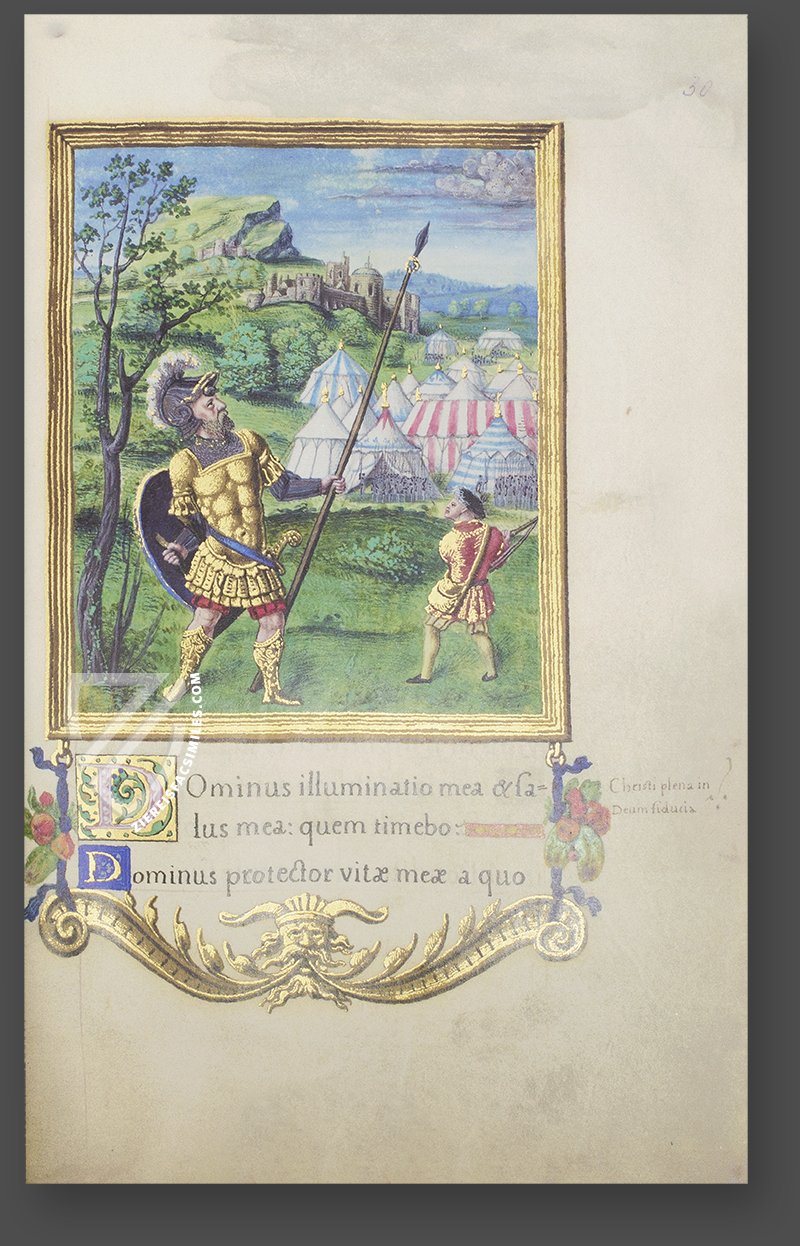 30
DOminus illuminatio mea & sa-
lus mea: quem timebo:
Dominus protector vitæ meæ a quo
Christi plena in
Deum fiducia
ZIEREIS-FACSIMILES.COM